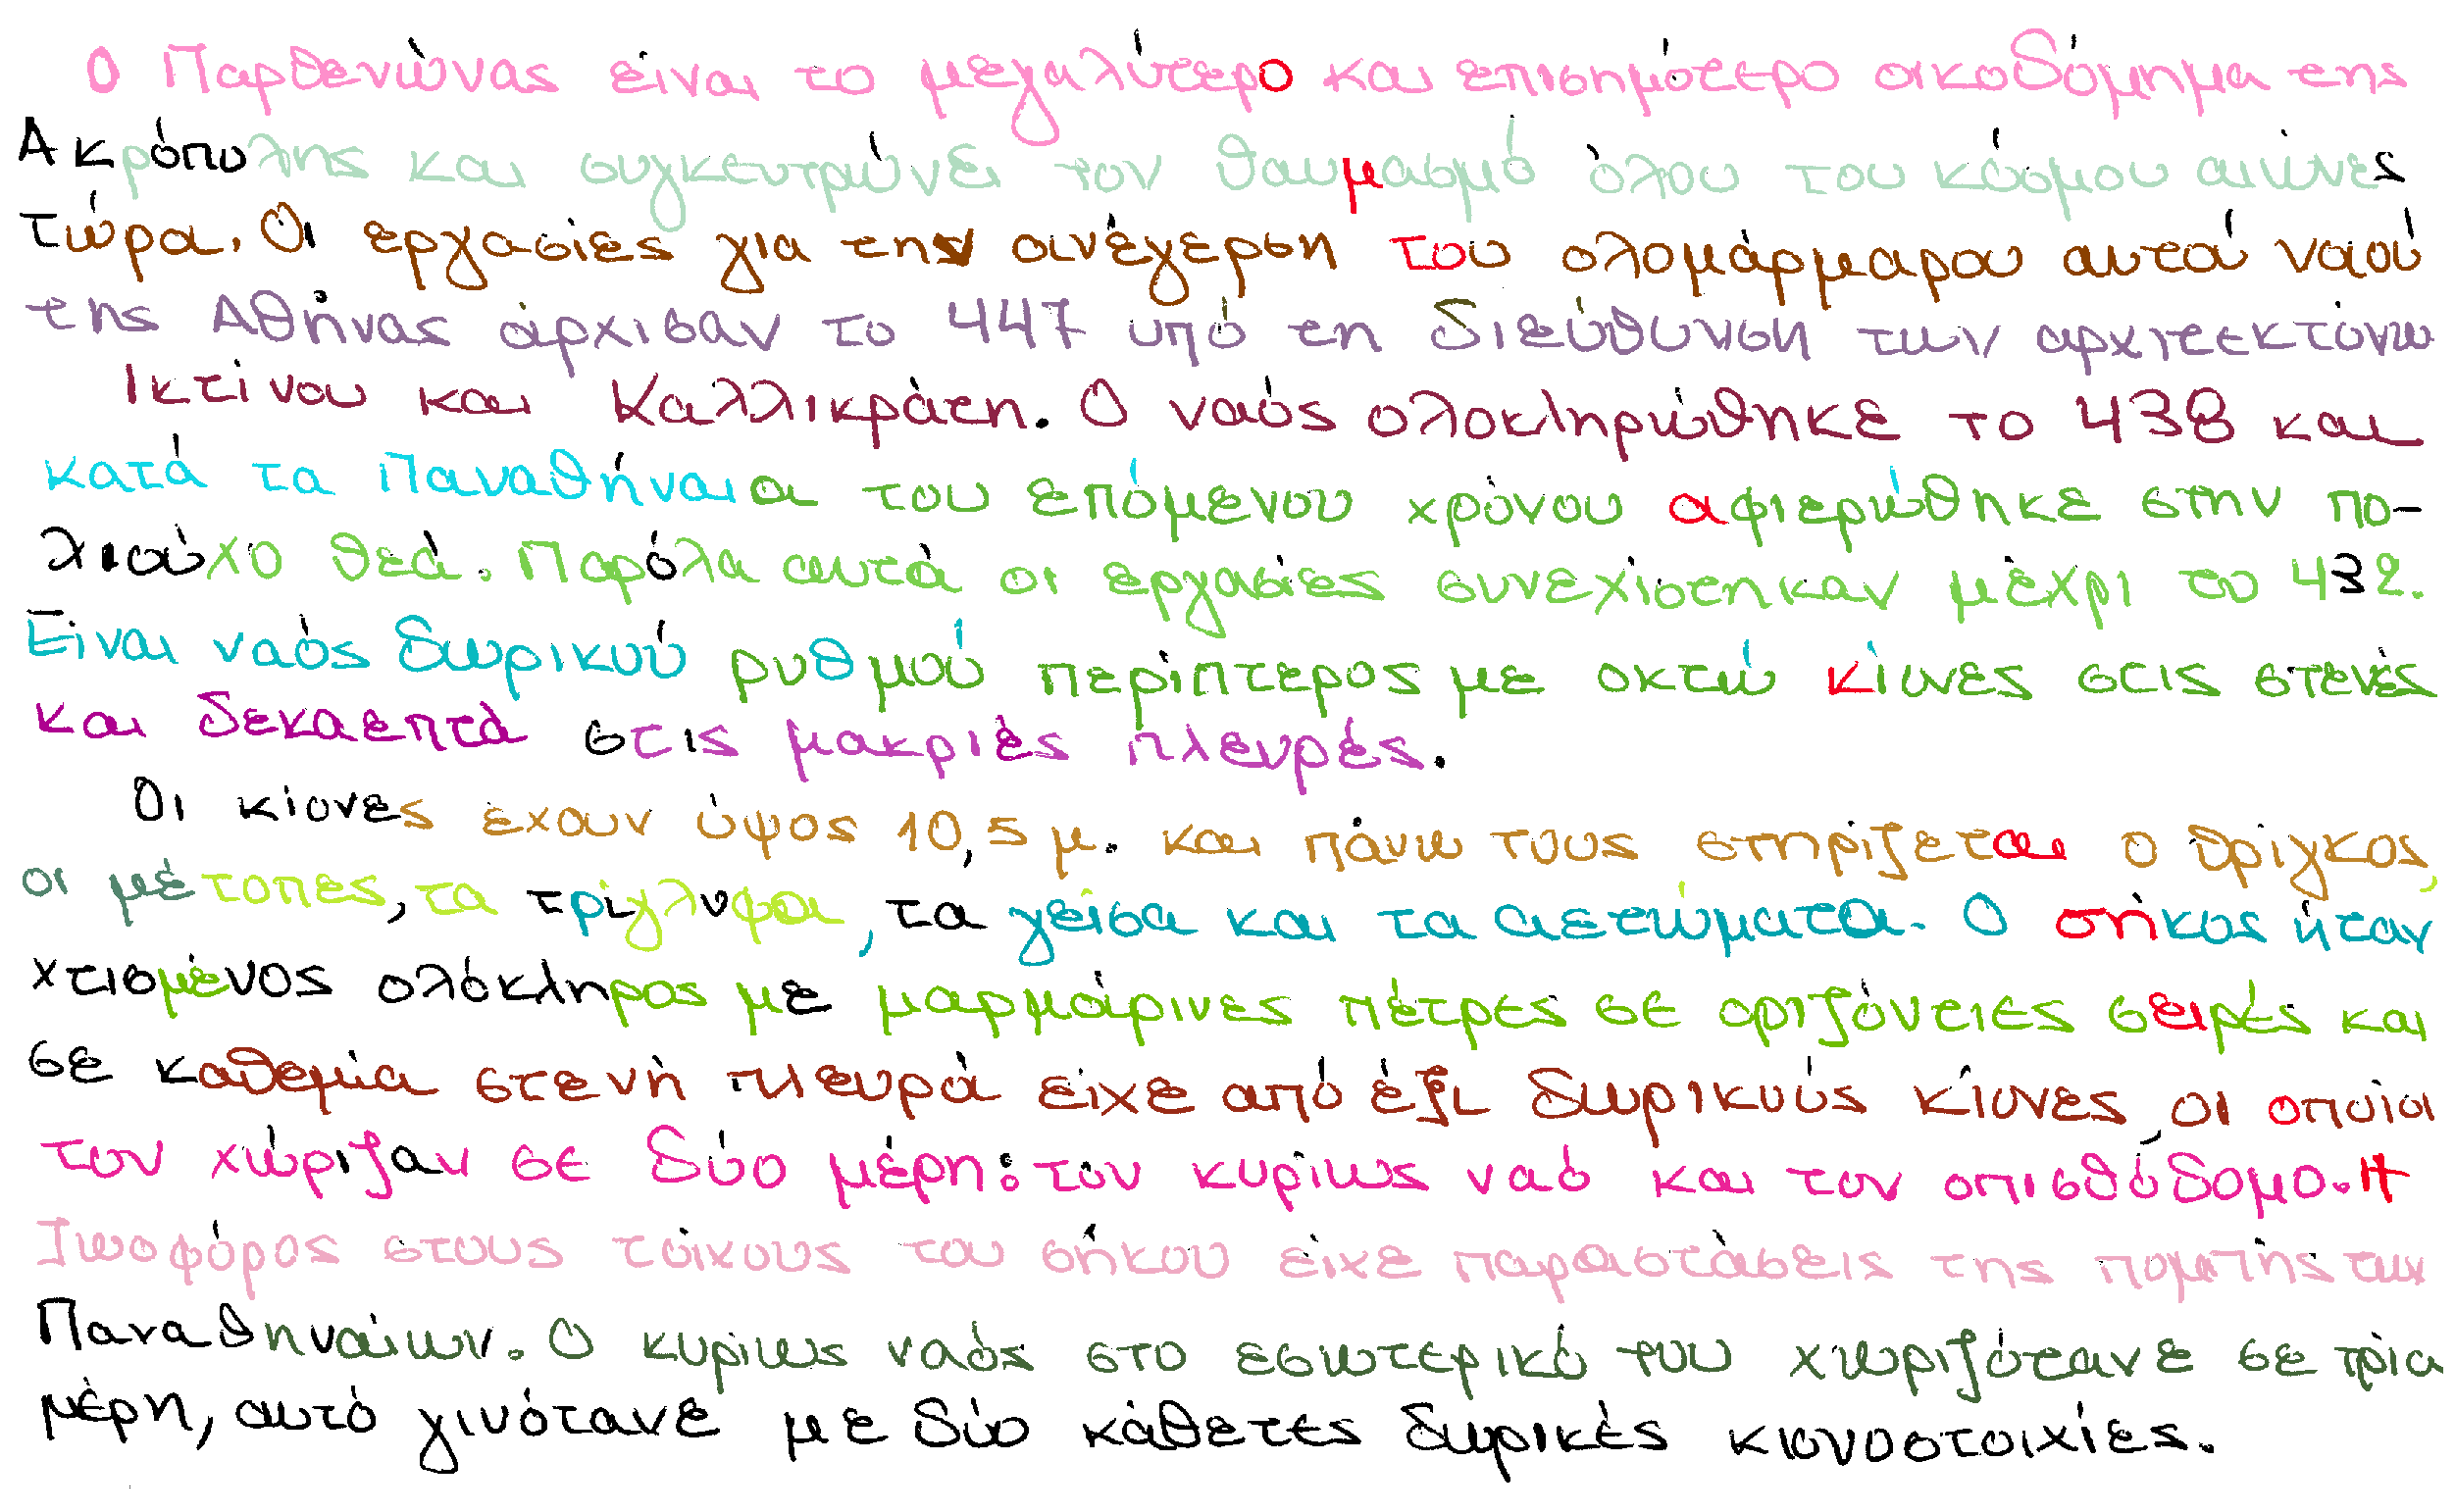 Ο Παρθενώνας είναι το μεγαλύτερο και επισημότερο οικοδόμημα της
Ακρόπολης και συγκεντρώνει τον θαυμασμό όλου του κόσμου αιώνες
τώρα. Οι εργασίες για την ανέγερση του ολομάρμαρου αυτού ναού
της Αθήνας άρχισαν το 447 υπό τη διεύθυνση των αρχιτεκτόνω
Ικτίνου και Καλλικράτη. Ο ναός ολοκληρώθηκε το 438 και
κατά τα Παναθήναια του επόμενου χρόνου αφιερώθηκε στην πο-
λιούχο θεά. Παρόλα αυτά οι εργασίες συνεχίστηκαν μέχρι το 432.
Είναι ναός δωρικού ρυθμού περίπτερος με οκτώ κίονες στις στενές
και δεκαεπτά στις μακριές πλευρές.
Οι κίονες έχουν ύψος 10,5 μ. και πάνω τους στηρίζεται ο θρίγκος,
οι μέτοπες, τα τρίγλυφα, τα γείσα και τα αετώματα. Ο σήκος ήταν
χτισμένος ολόκληρος με μαρμάρινες πέτρες σε οριζόντιες σειρές και
σε καθεμία στενή πλευρά είχε από έξι δωρικούς κίονες, οι οποίοι
τον χώριζαν σε δύο μέρη: τον κυρίως ναό και τον οπισθόδομο. Η
Ζωοφόρος στους τοίχους του σήκου είχε παραστάσεις της πομπής των
Παναθηναίων. Ο κυρίως ναός στο εσωτερικό του χωριζότανε σε τρία
μέρη, αυτό γινότανε με δύο κάθετες δωρικές κιονοστοιχίες.